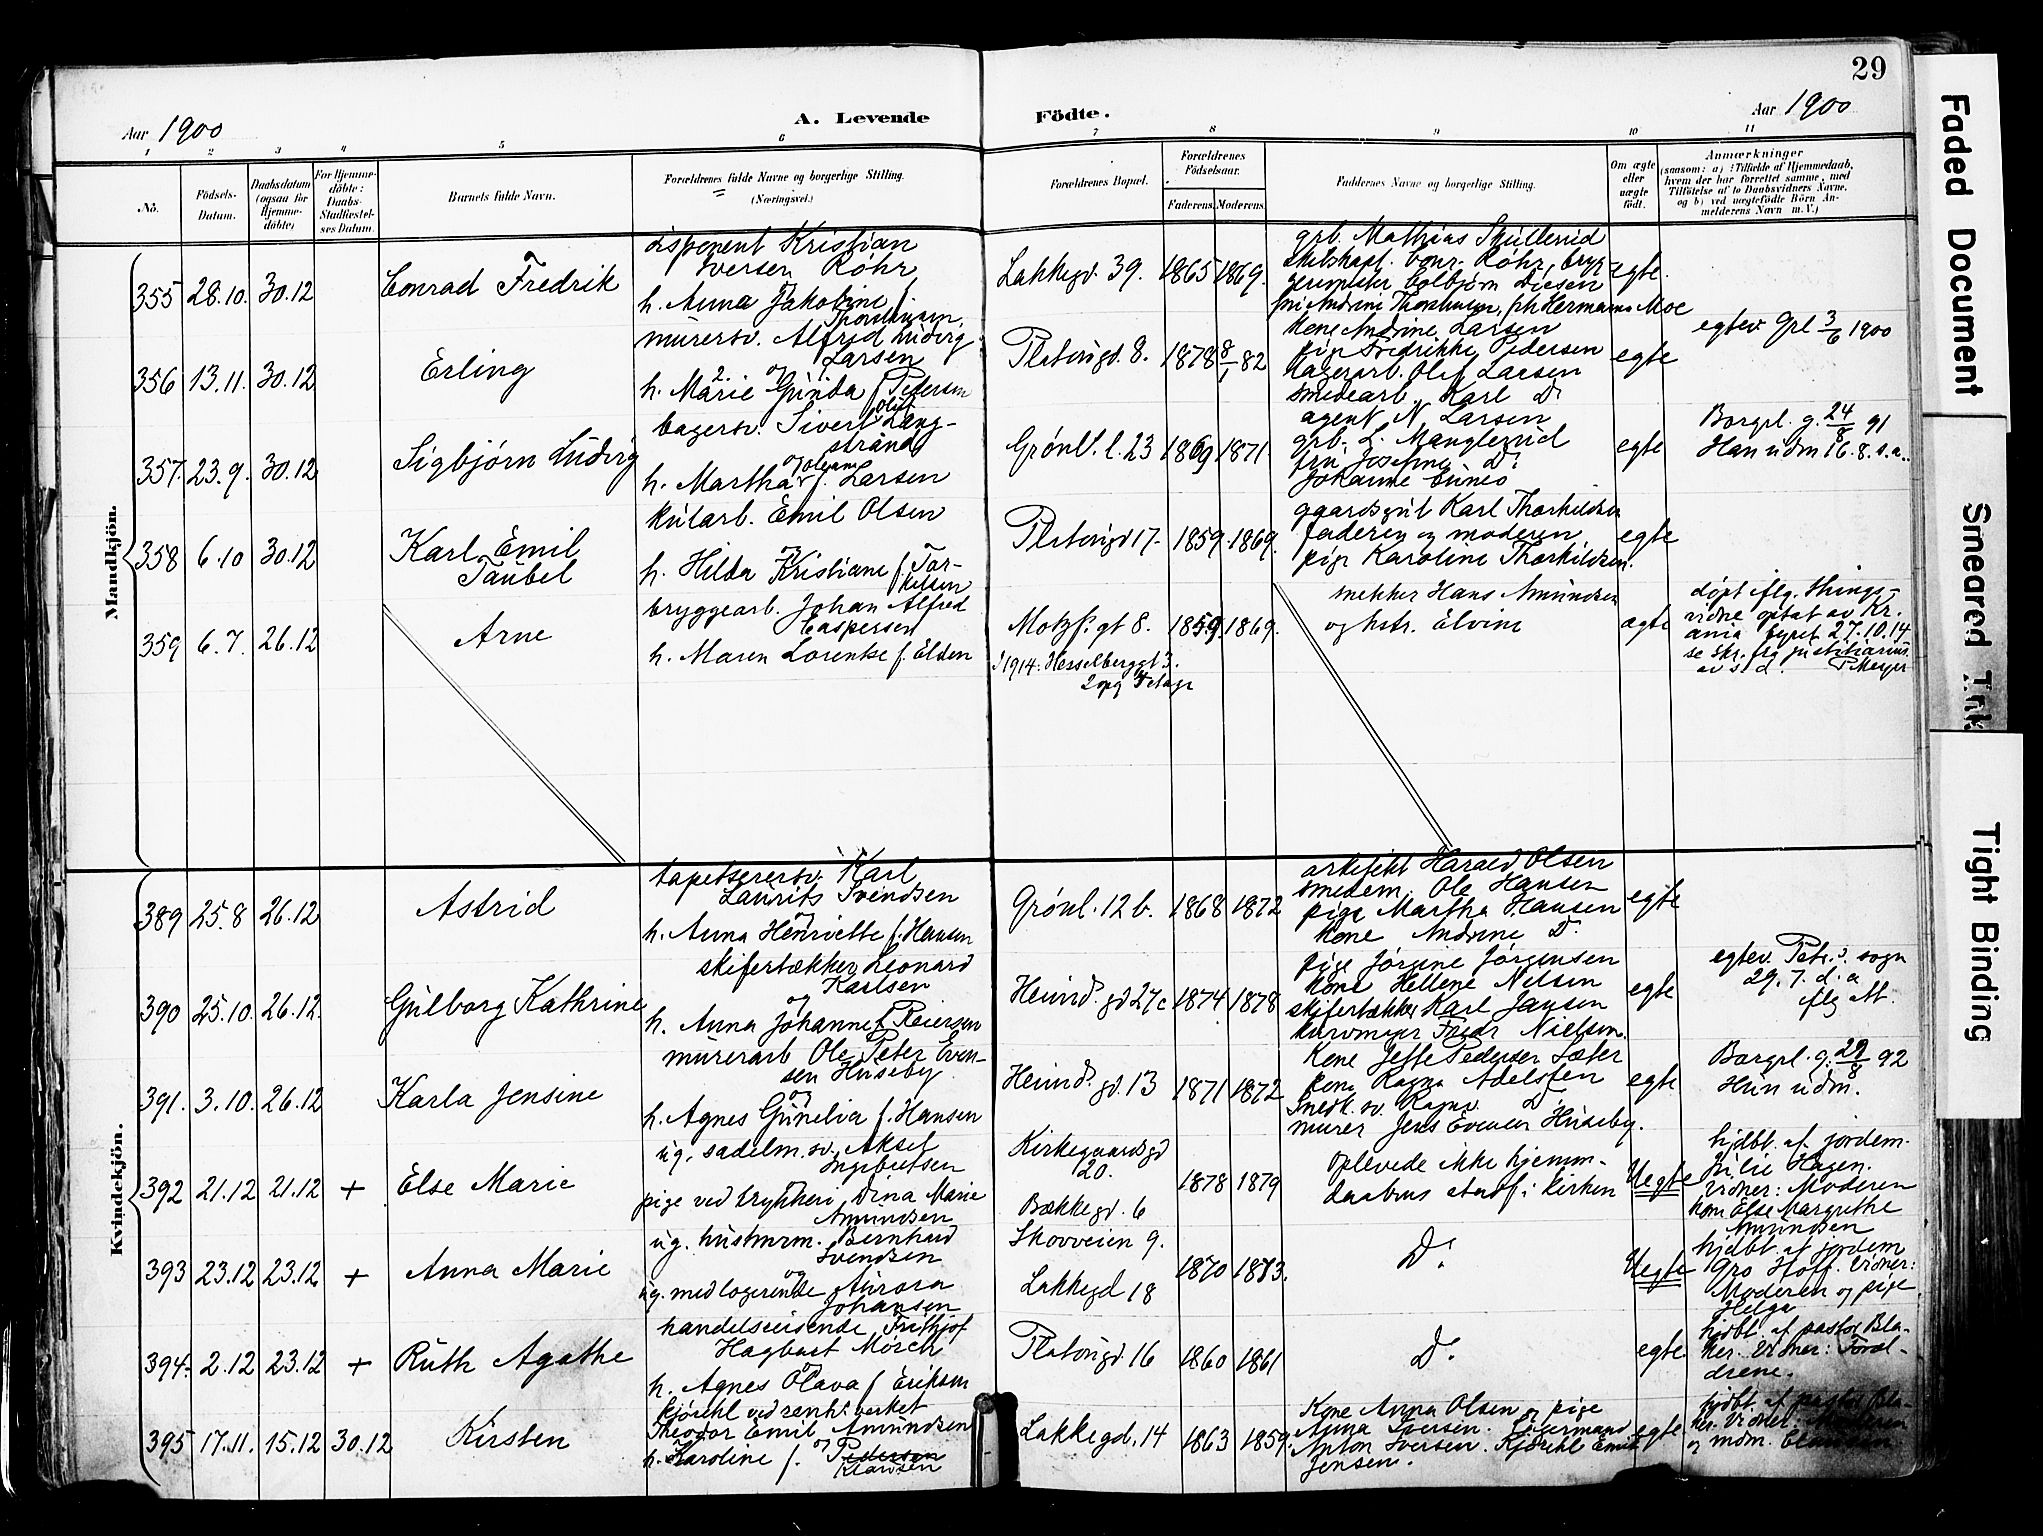 29
Aar 1900
A. Levende Födte.
Aar 1900
1 2 3 4 5 6 7 8 9 10 11
No.
Födsels-Datum.
Daabsdatum (ogsaa for Hjemme-döbte)
For Hjemme-döbte: Daabs-Stadfæstel-ses Datum.
Barnets fulde Navn.
Forældrenes fulde Navne og borgerlige Stilling. (Næringsvei.)
Forældrenes Bopæl.
Forældrenes Födselsaar.
Faderens. Moderens.
Faddernes Navne og borgerlige Stilling.
Om ægte eller uægte födt.
Anmærkninger
(saasom: a) i Tilfælde af Hjemmedaab, hvem der har forrettet samme, med Tilföielse af to Daabsvidners Navne, og b) ved uægtefödte Börn An-melderens Navn m. V.)
Mandkjön.
355 28.10. 30.12
Conrad Fredrik
disponent Kristian
Iversen Röhr
og
h. Anna Jakobine f.
Thorstensen
Lakkegd. 39. 1865 1869.
grb. Mathias Skullerud
Conr. Röhr, bryg-
Diesen
Hermann Moe
egte.
356 13.11. 30.12
Erling
murersv. Alfred Ludvig
Larsen
og
h. Marie Gunda f. Pedersen
Platousgd. 8. 1878 8/1 82
kone Andrine Larsen
pige Fredrikke Pedersen
lagerarb. Olaf Larsen
smedearb. Karl Do
egte
egtev. Grl 3/6 1900
357. 23.9. 30.12
Sigbjörn Ludvig
bagersv. Sivert Olaf Lang-
strand
og
h. Martha Oleane f. Larsen
Grönl. l. 23 1869 1871.
agent N Larsen
grb. L. Manglerud
fru Josefine Do
Johanne
egte
Borgrl. g. 24/8 91
Han udm 16.8. s.a.
358 6.10 30.12
Karl Emil
Taubel
kularb. Emil Olsen
og
h. Hilda Kristiane f. Tor-
kelsen
Platousgd 17. 1859 1869.
gaardsgut Karl Thorkildsen
faderen og moderen
pige Karoline Thorkildsen.
egte
359 6.7. 26.12
Arne
bryggearb. Johan Alfred
Caspersen
h. Maren Lorentse f. Olsen
Motzf. gt 8. 1859. 1869.
i 1914: Hesselberggt 3.
2 opg 4 etage
snekker Hans Amundsen
og hstr. Elvine
ægte
döpt iflg. things-
vidne optat av Kr.
ania byret 27.10.14
se skr. fra justitiarius
av s. d. P. Meyer
Kvindekjön.
389 25.8 26.12
Astrid
tapetserersv. Karl
Laurits Svendsen
og
h. Anna Henriette f. Hansen
Grönl. 12 b. 1868 1872
arkitekt Harald Olsen
smedem. Ole Hansen
pige Martha Hansen
kone Andrine Do
egte
390 25.10. 26.12.
Gulborg Kathrine
skifertækker Leonard
Karlsen
og
h. Anna Johanne f. Reiersen
Heimd. gd 27c 1874 1878
pige Jörgine Jörgensen
kone Hellene Nelsen
skifertækker Karl Jansen
kurvmager Fredr Nielsen.
egte
egtev. Petr. s. sogn
29.7. d. a
flg At.
391. 3.10. 26.12
Karla Jensine
murerarb Ole Peter Even-
sen Huseby
og
h. Agnes Gunelia f. Hansen
Heimd. gd. 13 1871 1872
Kone Jette Pedersen Sæter
kone Ragna Adelsten
Snedk. sv. Ragnv. Do
murer Jens Evensen Huseby.
egte
Borgrl. g. 29/8 92
Hun udm.
392 21.12 21.12 +
Else Marie
ug. sadelm. sv. Aksel
Ingebretsen
pige ved trykkeri, Dina Marie
Amundsen
Kirkegaardsgd
20.
Bækkegd. 6
1878 1879
Oplevede ikke hjemm-
daabens stadf. i kirken
Uegte
hjdbt. af jordem.
Julie Hagen.
Vidner: Moderen
kone Else Margrethe
Amundsen
393 23.12 23.12 +
Anna Marie
ug. husmrm. Bernhard
Svendsen
og
ug. med logerende Aurora
Johansen
Skovveien 9.
Lakkegd 18
1870 1873.
Do
Uegte
hjdbt. af jordem
Gro Hoff. Vidner:
Moderen og pige
Helga
394. 2.12 23.12 +
Ruth Agathe
handelsreisende Frithjof
Hagbart Mörch
og
h. Agnes Olava f. Eriksen
Platousgd. 16 1860 1861
Do
egte.
hjdbt. af pastor Bla-
ker. Vidner: Foræl-
drene.
395 17.11. 15.12 30.12
Kirsten
kjörekl ved renh. verket
Theodor Emil Amundsen
og
h. Karoline f. Pedersen
Klausen
Lakkegd. 14 1863 1859.
Kone Anna Olsen og pige
Anna Iversen.
Anton Iversen. Kjörekl Emil
Jensen.
egte.
hjdbt. af pastor Bla-
ker. Vidner:
og mdm.
Faded Document
Smeared Ink
Tight Binding